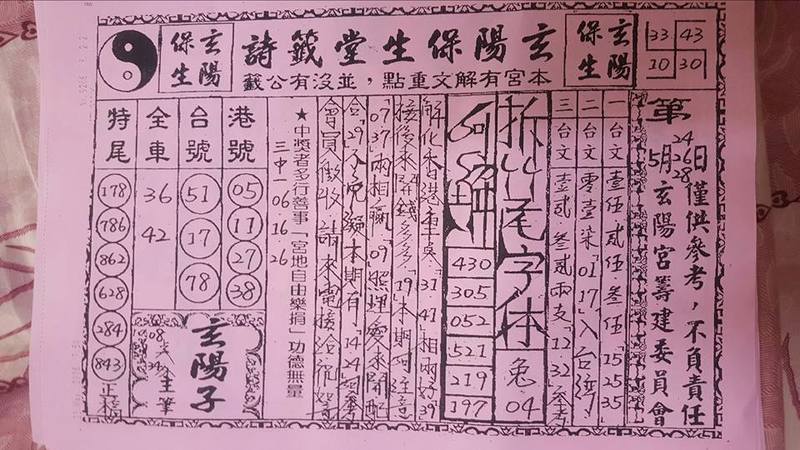 玄陽保生
玄陽保生堂籤詩
本宮有解文重點，並沒有公籤
玄陽保生
33 43
10 30
第
5月24 26 28日僅供參考，不負責任
玄陽宮籌建委員會
一 台文 壹伍 貳伍 叁伍「15 25 35
二 台文 零壹柒「01 17」入台號
三 台文 壹貳 叁貳 兩支「12 32」參考
拆 尾字体
兔 04
430
305
052
521
219
197
解化 香港 31 41 相兩 39
接後來 開錢多多「19 本期可注意
「07 37」兩相 「09 照理愛來開
合「29 本期有「14 24
會員徵收 請來電接洽
★中獎者多行善事「宮地自由樂捐」功德無量
三中一 06 16 26
港號
05
11
27
38
台號
51
17
78
全車
36
42
特尾
178
786
862
628
284
843
玄陽子
主筆
08
34